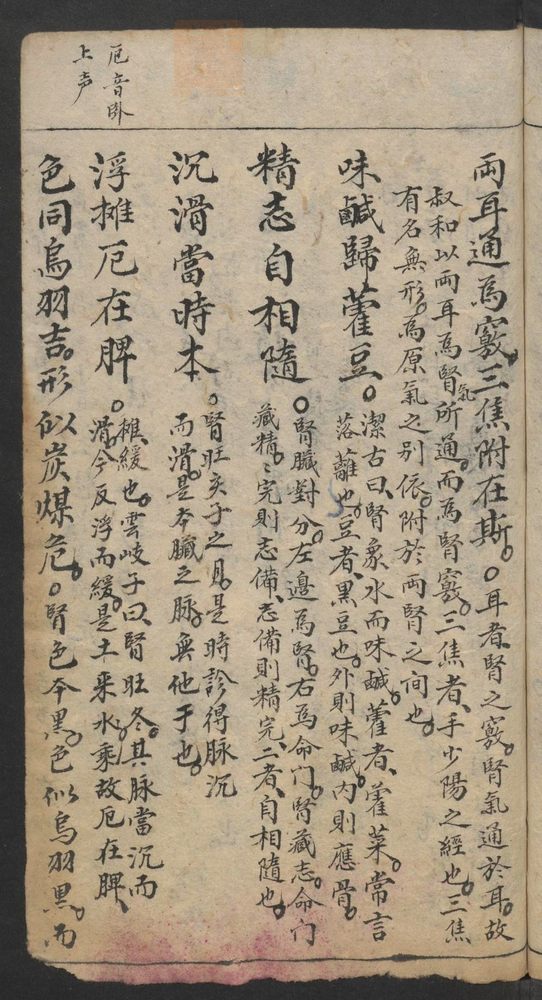 兩耳通爲竅三焦附在斯。○耳者、腎之竅。腎氣通於耳。故
叔和以兩耳爲腎氣所通。而爲腎竅。三焦者、手少陽之經也。三焦
有名無形。爲原氣之別依。附於兩腎之间也。
味鹹歸藿豆。○潔古曰、腎象水而味鹹。藿者、藿菜。常言
落蘺也。豆者、黑豆也。外則味鹹、內則應骨。
精志自相隨○腎臟對分。左邊爲腎。右爲命门。腎藏志。命门
藏精。精完則志備、志備則精完、二者、自相隨也。
沉滑當時本。○腎旺亥子之月。是時診得脉沉
而滑。是本臟之脉。無他于也。
浮攤厄在脾○攤緩也。雲岐子曰、腎旺冬。其脉當沉而
滑。今反浮而緩。是土來水乘。故厄在脾、
色同烏羽吉。形似炭煤危。○腎色本黑。色似烏羽黑。而
厄音卧
上声